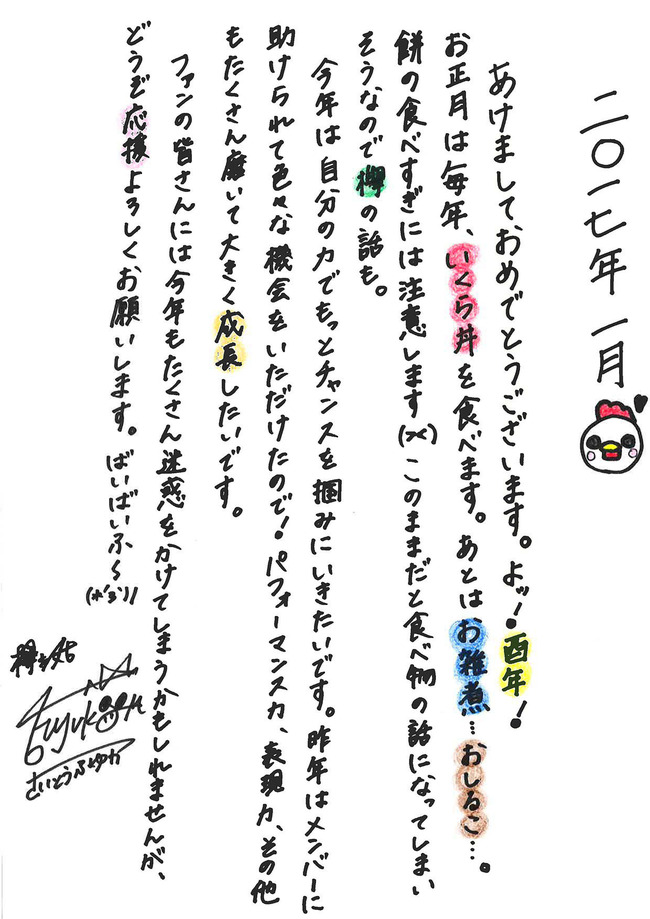 二〇一七年 一月
あけましておめでとうございます。よッ!酉年!
お正月は毎年、いくら丼を食べます。あとはお雑煮…おしるこ…。
餅の食べすぎには注意します(><)このままだと食べ物の話になってしまい
そうなので欅の話も。
今年は自分の力でもっとチャンスを掴みにいきたいです。昨年はメンバーに
助けられて色々な機会をいただけたので!パフォーマンス力、表現力、その他
もたくさん磨いて大きく成長したいです。
ファンの皆さんには今年もたくさん迷惑をかけてしまうかもしれませんが、
どうぞ応援よろしくお願いします。ばいばいふ〜(*´3`)/
欅坂46
fuyuka
さいとうふゆか